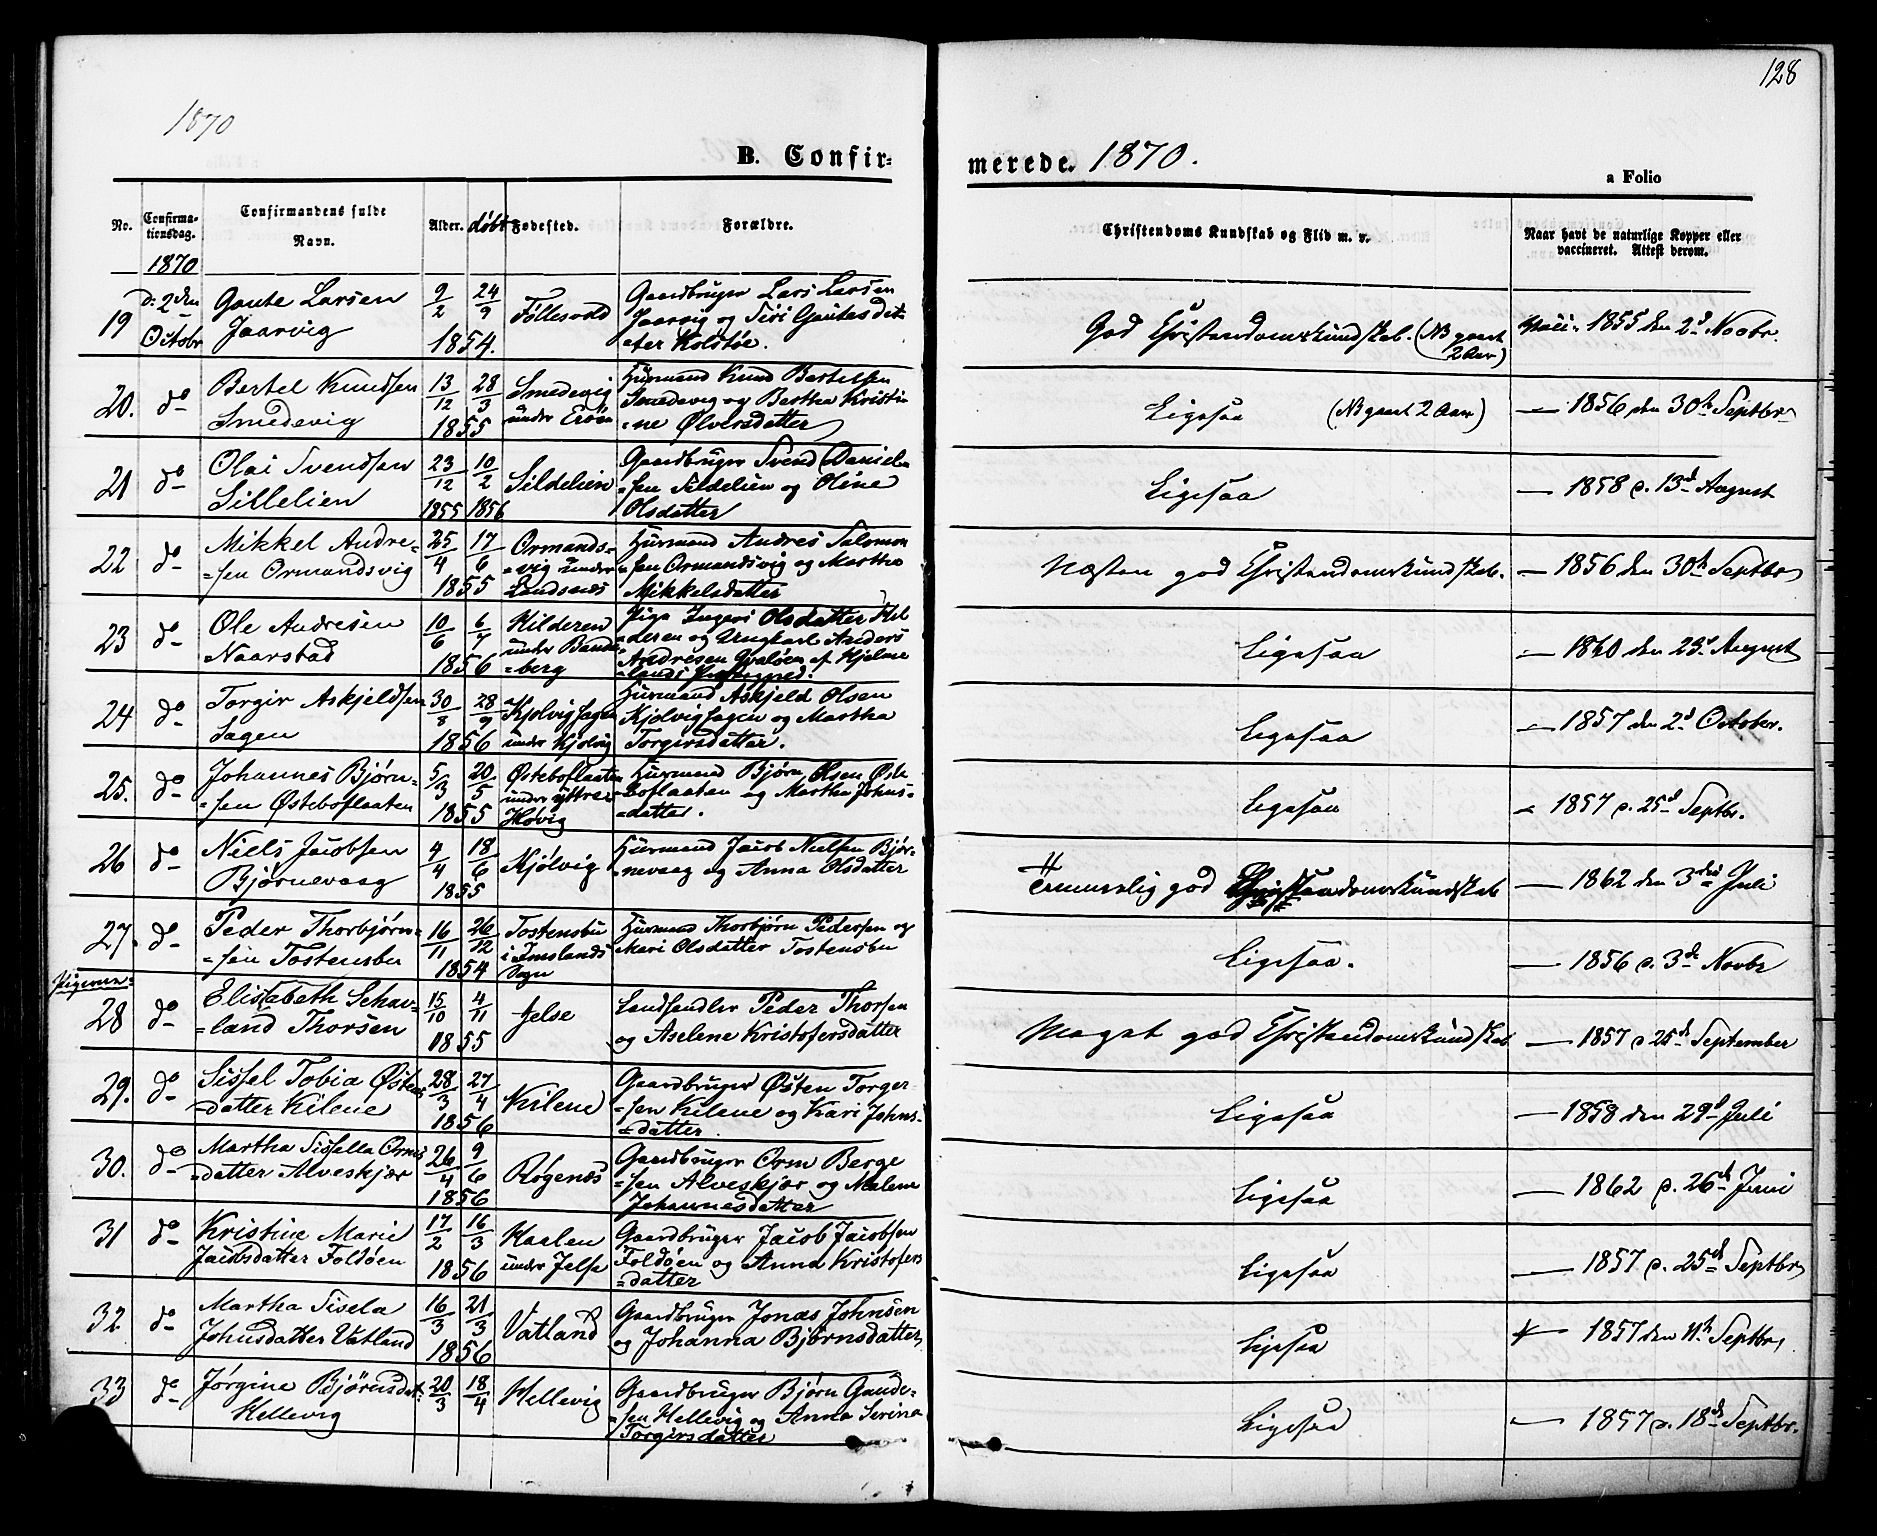 128
1870
B. Confir=
merede. 1870.
a Folio
No.
Confirma-
tionsdag.
Confirmandens fulde
Navn.
Alder.
døbt
Fødested.
Forældre.
Christendoms Kundskab og Flid m. v.
Naar havt de naturlige Kopper eller
vaccineret. Attest derom.
1870
19
d: 2den
Octobr
Gaute Larsen
Jaarvig
9/2 24/9
1854.
Føllesvold
Gaardbruger Lars Larsen
Jaarvig og Siri Gautesdat
ter Kolstøe.
God Christendomskundskab. (NB gaaet
2 Aar)
1855 den 2d Novbr.
20.
do
Bertel Knudsen
Smedevig
13/12 28/3
1855
Smedevig
under Erøen
Huusmand Knud Bertelsen
Smedevig og Bertha Kristi
=ne Ølversdatter
Ligesaa (NB gaaet 2 Aar)
— 1856 den 30te Septbr
21
do
Olai Svendsen
Sillelien
23/12 10/2
1855 1856
Sildelien
Gaardbruger Svend Daniel
=sen Sildelien og Oline
Olsdatter
Ligesaa
— 1858 d. 13d August
22
do
Mikkel Andre=
=sen Ormandsvig
25/4 17/6
1855
Ormands=
=vig under
Landsnæs
Huusmand Andres Salomon
=sen Ormandsvig og Martha
Mikkelsdatter
Næsten god Christendomskundskab.
— 1856 den 30te Septbr
23
do
Ole Andresen
Naarstad
10/6 6/7
1856
Hilderen
under Bande
=berg
Pige Ingeri Olsdatter Hil
=deren og Ungkarl Anders
Andresen Hvaløen af Hjelme
=lands Præstegjæld.
Ligesaa
— 1860 den 23d August
24
do
Torgir Askjeldsen
Sagen
30/8 28/9
1856
Kjølvigsagen
under Kjølvig
Huusmand Askjeld Olsen
Kjølvigsagen og Martha
Torgirsdatter.
Ligesaa
— 1857 den 2d October.
25.
do
Johannes Bjørn=
=sen Østeboflaaten
5/3 20/5
1855
Østeboflaaten
under yttre
Høvig
Huusmand Bjørn Olsen Øste
boflaaten og Martha Johns=
=datter.
Ligesaa
— 1857 d. 25d Septbr.
26
do
Niels Jacobsen
Bjørnevaag
4/4 18/6
1855
Kjølvig
Huusmand Jacob Nielsen Bjør=
=nevaag og Anna Olsdatter
Temmelig god Christendomskundskab
— 1862 den 3die Juli
27.
do
Peder Thorbjørn=
=sen Tostensbu
16/11 26/12
1854
Tostensbu
i Imslands
Sogn
Huusmand Thorbjørn Pedersen og
Mari Olsdatter Tostensbu
Ligesaa.
— 1856 d. 3de Novbr
Pigerne:
28
do
Elisabeth Schau=
=land Thorsen
15/10 4/11
1855
Jelse
Landhandler Peder Thorsen
og Aselene Kristofersdatter
Meget god Christendomskundskab
— 1857 d 25de September
29.
do
Sissel Tobia Østens
=datter Kilene
28/3 27/4
1856
Kilene
Gaardbruger Østen Torger=
=sen Kilene og Kari Johns=
=datter.
Ligesaa
— 1858 den 29d Juli
30.
do
Martha Sissella Orms
=datter Alveskjær
26/4 9/6
1856
Røgenæs
Gaardbruger Orm Berge
=sen Alveskjær og Malene
Johannesdatter
Ligesaa
— 1862 d. 26d Juni
31
do
Kristine Marie
Jacobsdatter Foldøen
17/2 16/3
1856
Haalen
under Jelse
Gaardbruger Jacob Jacobsen
Foldøen og Anna Kristofers
=datter
Ligesaa
— 1857 d. 25de Septbr
32
do
Martha Sisela
Johnsdatter Vatland
16/3 21/3
1856
Vatland
Gaardbruger Jonas Johnsen
og Johanna Bjørnsdatter
Ligesaa
1857 den 11te Septbr
33
do
Jørgine Bjørnsdat
Hellevig
20/3 18/4
Hellevig
Gaardbruger Bjørn Gaute=
=sen Hellevig og Anna Serina
Torgirsdatter
Ligesaa
— 1857 d. 18de Septbr.